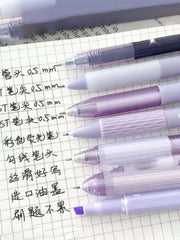 笔头 0.5mm
ST笔头 0.5mm
ST笔头 0.5mm
ST笔头 0.5mm
彩色荧光笔
勾线笔头
丝滑好写
进口油墨
刷题不累